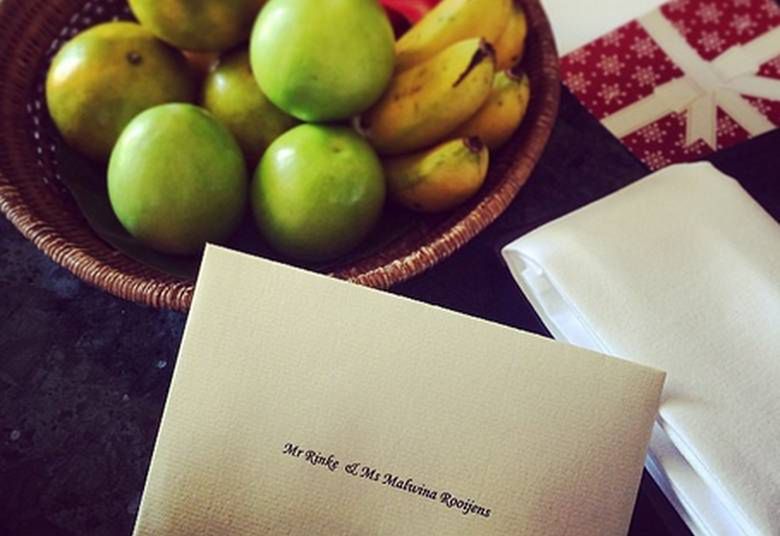 Mr Rinke & Ms Malwina Rooijens